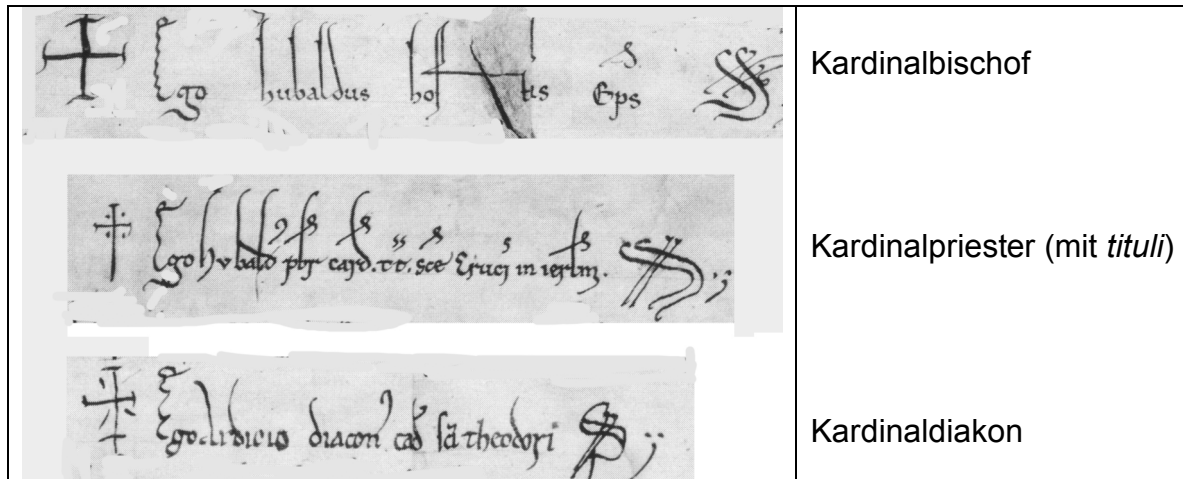 Ego hubaldus hostis Eps Kardinalbischof
Ego hubald pbr card. tt. sce Cruci in ierlm. Kardinalpriester (mit tituli)
Ego diacon card sci theodori Kardinaldiakon